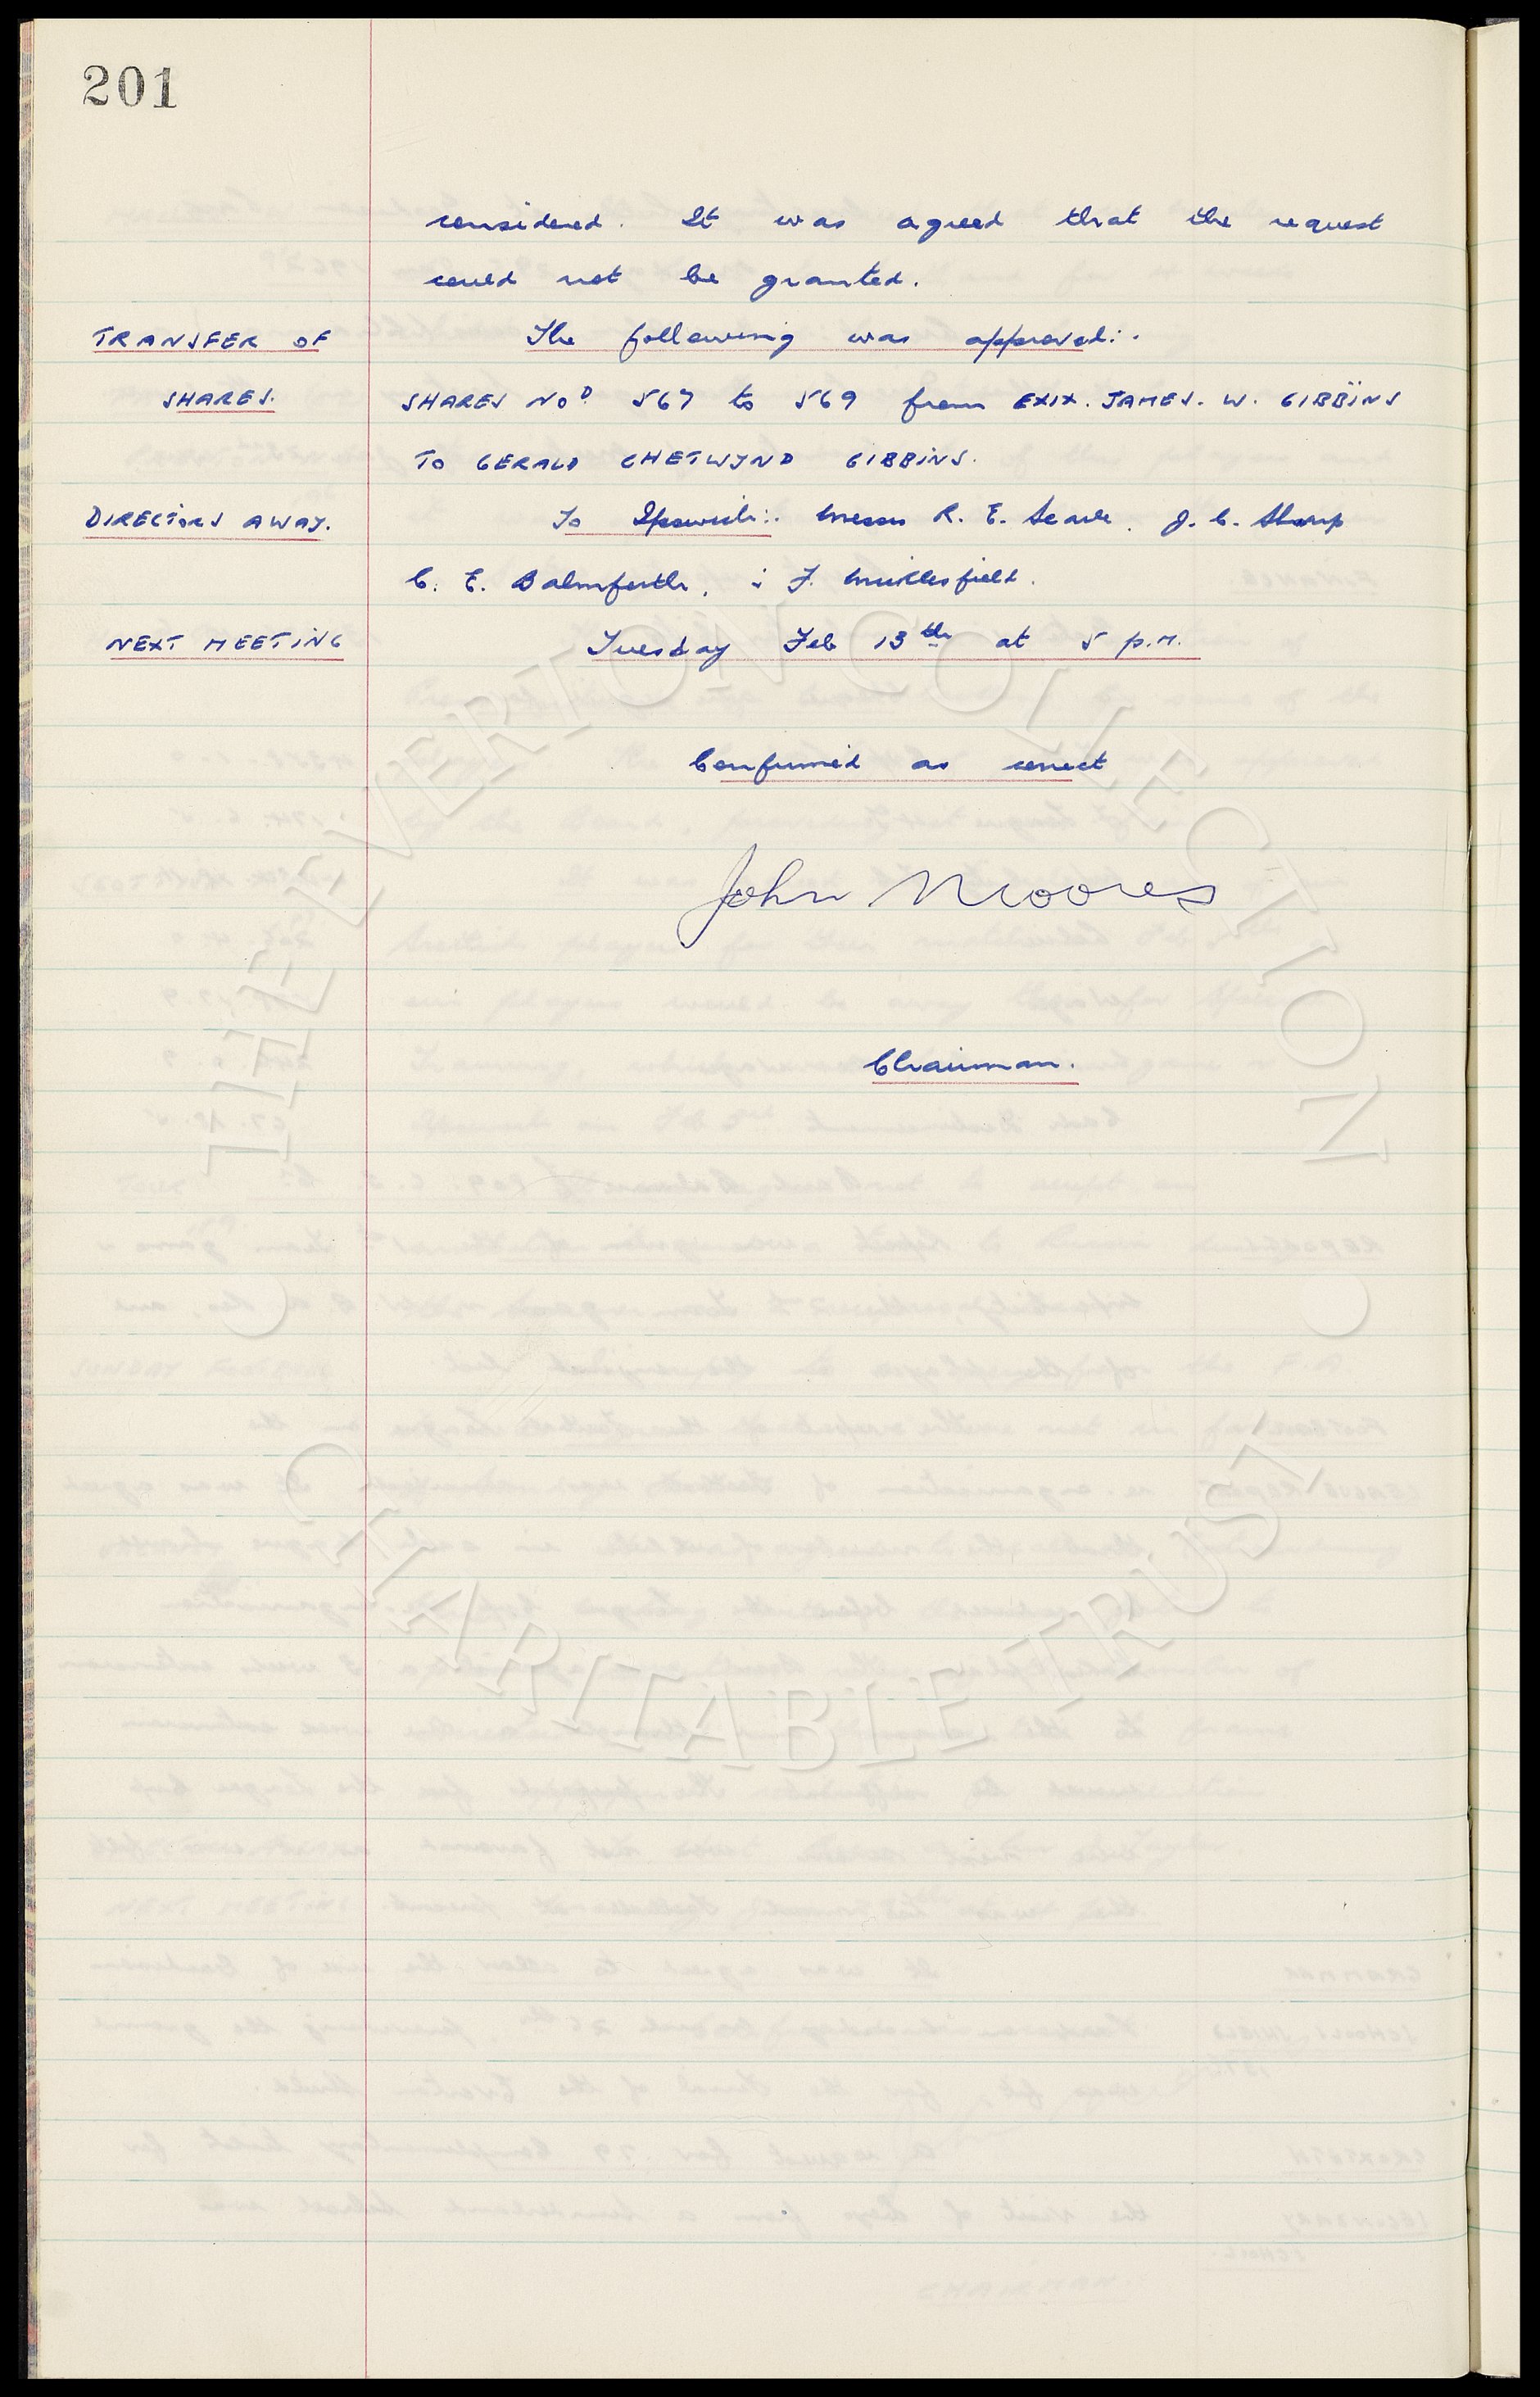 201
considered. It was agreed that the request
could not be granted.
TRANSFER OF The following was approved:-
SHARES. SHARES NoD. 567 to 569 from EXIX. JAMES. W. GIBBINS
TO GERALD CHETWYND GIBBINS.
DIRECTORS AWAY. To Ipswich:- Messrs R. E. Searle, J. C. Sharp
C. E. Balmforth, & F. Micklesfield.
NEXT MEETING Tuesday Feb 13th at 5 p.m.
Confirmed as correct
John Moores
Chairman.
THE EVERTON COLLECTION
CHARITABLE TRUST